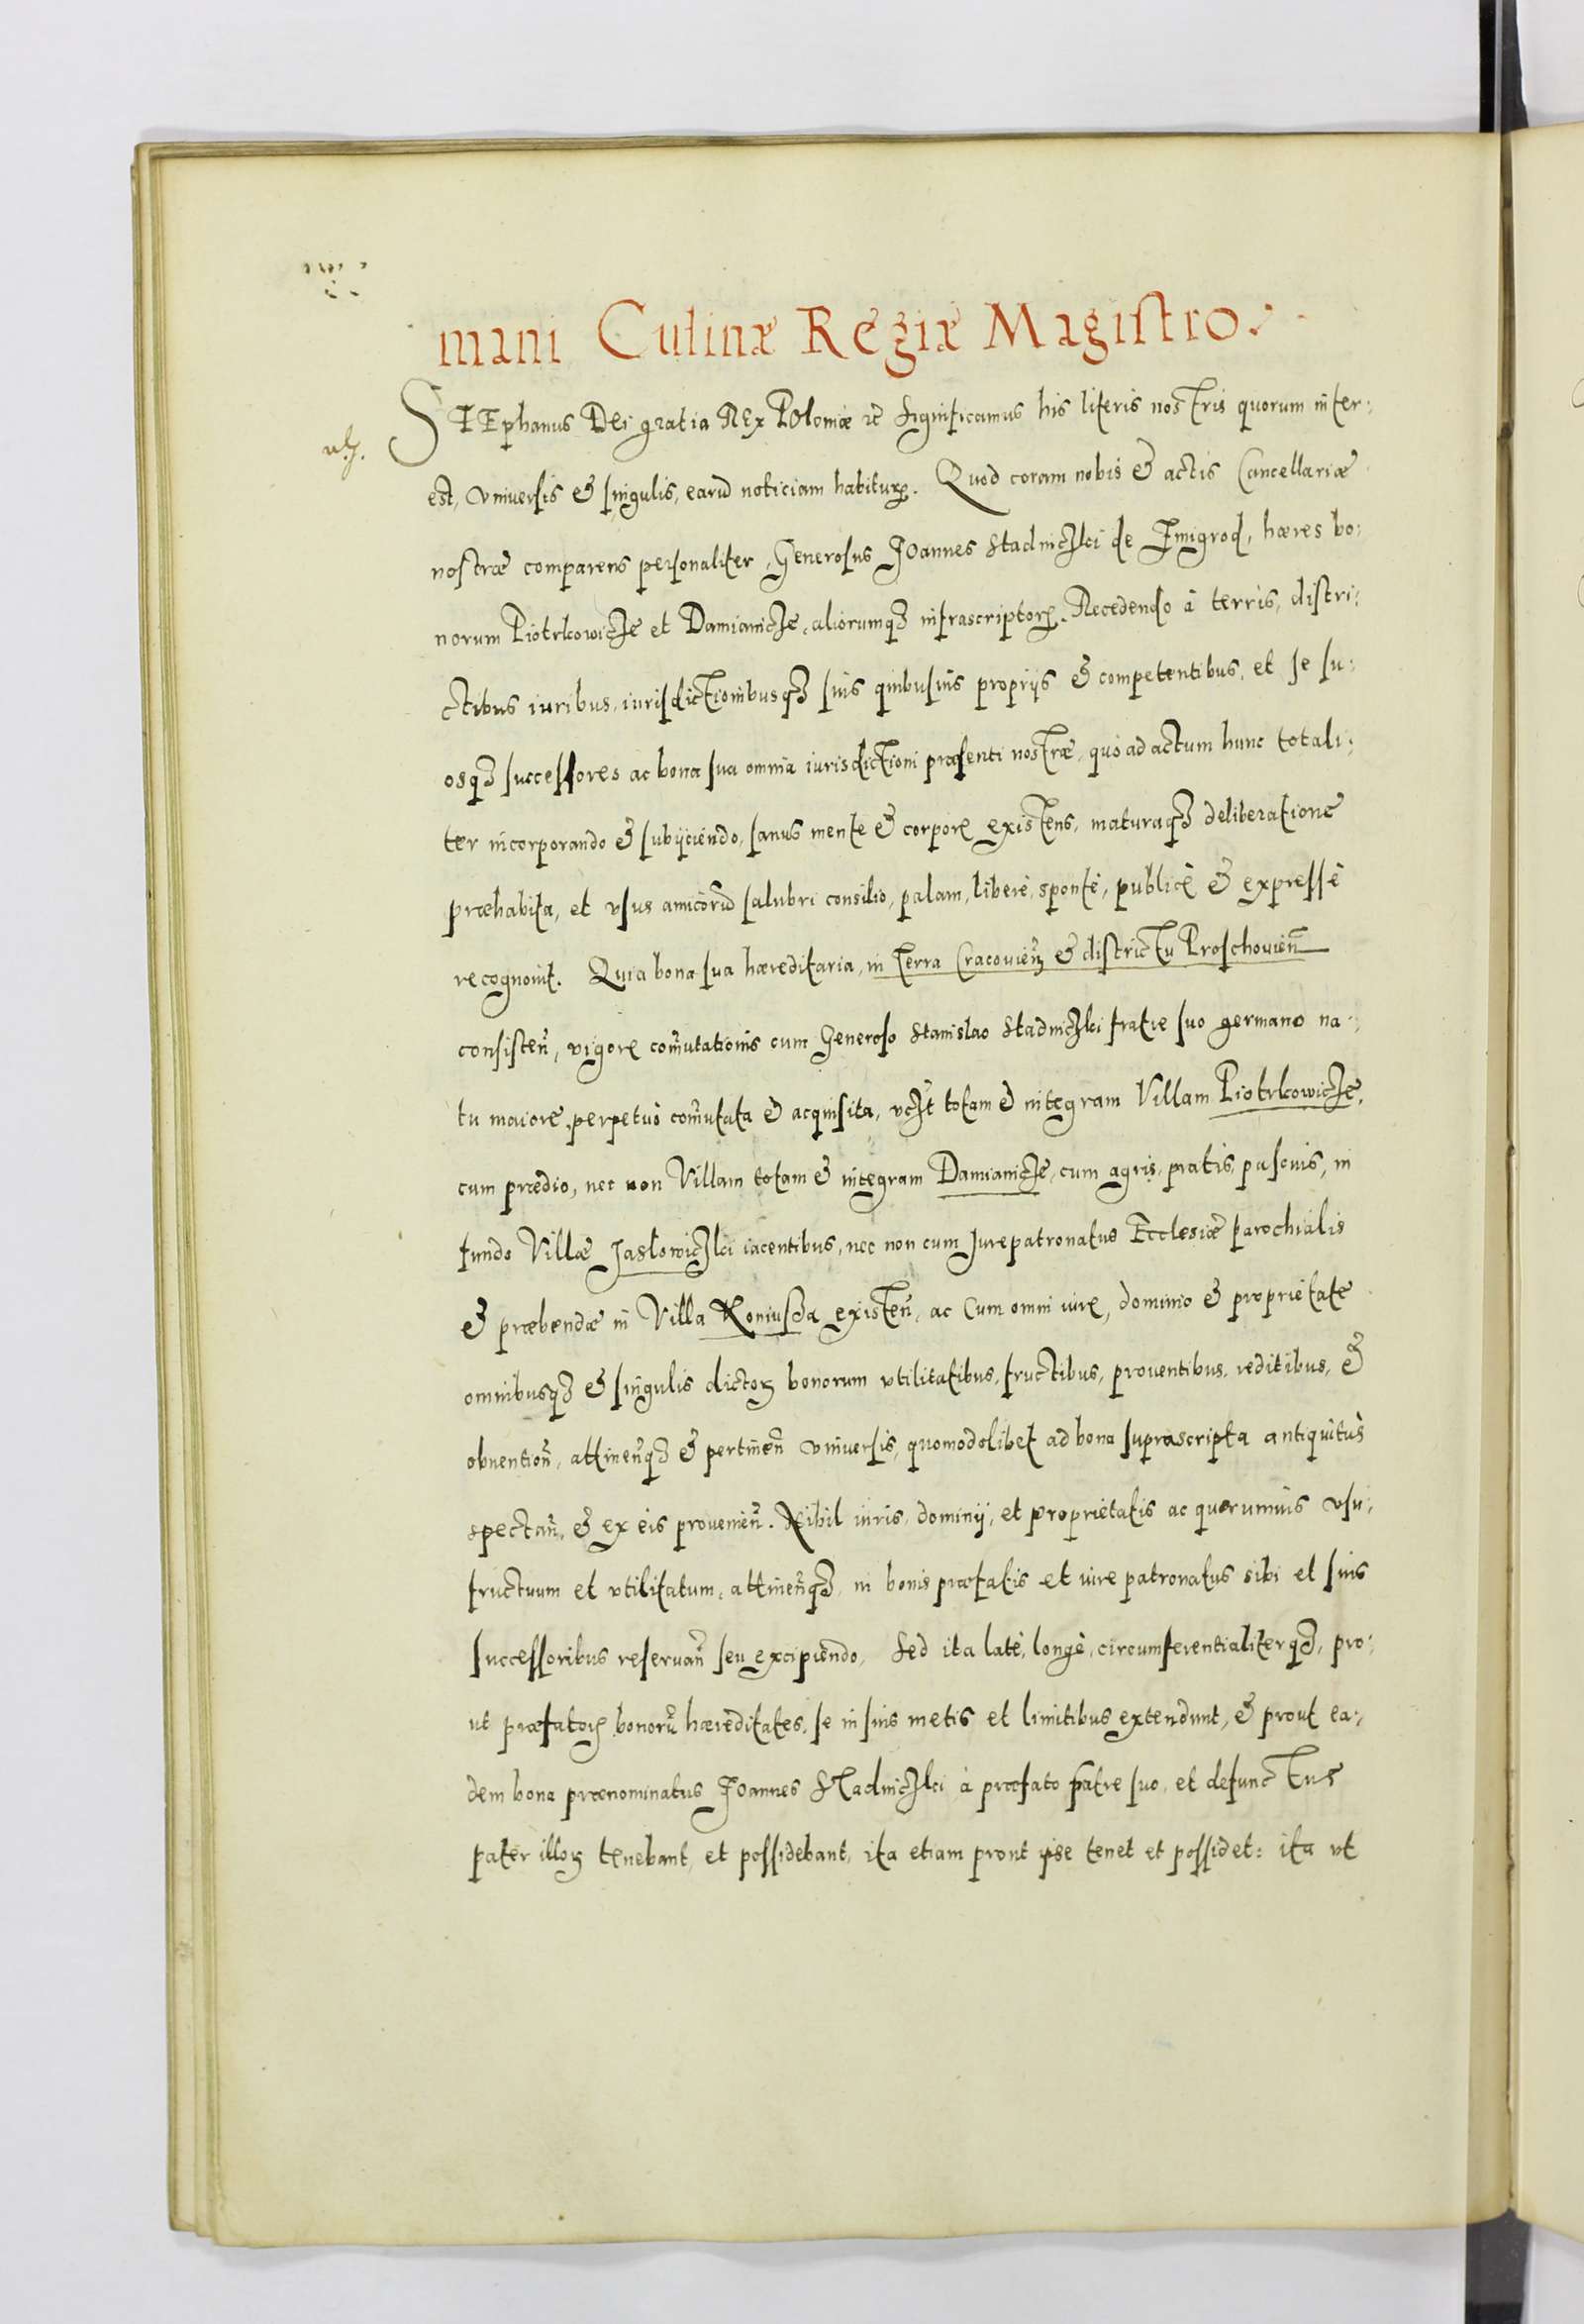 mani Culinæ Regiæ Magistro.
STEphanus Dei gratia REx POloniæ etc̃ Significamus his literis nostris quorum inter:
est, vniuersis & singulis, earũ noticiam habiturꝝ. Quod coram nobis & actis Cancellariæ
nostræ comparens personaliter, Generosus JOannes Stadniczki de Zmigrod, hæres bo:
norum Piotrkowicze et Damianicze, aliorumqȝ infrascriptorꝝ. Recedendo à terris, distri:
ctibus iuribus, iurisdictionibusqȝ suis quibusuis proprijs & competentibus, et se su:
osqȝ successores ac bona sua omnia iurisdictioni præsenti nostræ, quo ad actum hunc totali:
ter incorporando & subijciendo, sanus mente & corpore existens, maturaqȝ deliberatione
præhabita, et vsus amicorũ salubri consilio, palam, liberè, spontè, publicè & expressè
recognouit. Quia bona sua hæreditaria, in terra Cracouieñ & districtu Proschouieñ
consisteñ, vigore com̃utationis cum Generoso Stanislao Stadniczki fratre suo germano na:
tu maiore, perpetuò com̃utata & acquisita, vczt̃ totam & integram Villam Piotrkowicze,
cum prædio, nec non Villam totam & integram Damianicze, cum agris, pratis, pascuis, in
fundo Villæ Jaslowiczki iacentibus, nec non cum Jurepatronatus Ecclesiæ parochialis
& præbendæ in Villa Koniusza existeñ, ac Cum omni iure, dominio & proprietate
omnibusqȝ & singulis dictoꝝ bonorum vtilitatibus, fructibus, prouentibus, reditibus, &
obuentioñ, attineñqȝ & pertineñ vniuersis, quomodolibet ad bona suprascripta antiquitùs
spectañ, & ex eis prouenieñ. Nihil iuris, dominij, et proprietatis ac quorumuis vsu:
fructuum et vtilitatum, attineñqȝ in bonis præfatis et iure patronatus sibi et suis
successoribus reseruañ seu excipiendo, Sed ita latè, longè, circumferentialiterqȝ, pro:
ut præfatorꝝ bonorũ hæreditates, se in suis metis et limitibus extendunt, & prout ea:
dem bona prænominatus JOannes Stadniczki à præfato fratre suo, et defunctus
pater illoꝝ tenebant, et possidebant, ita etiam prout ipse tenet et possidet: ita vt